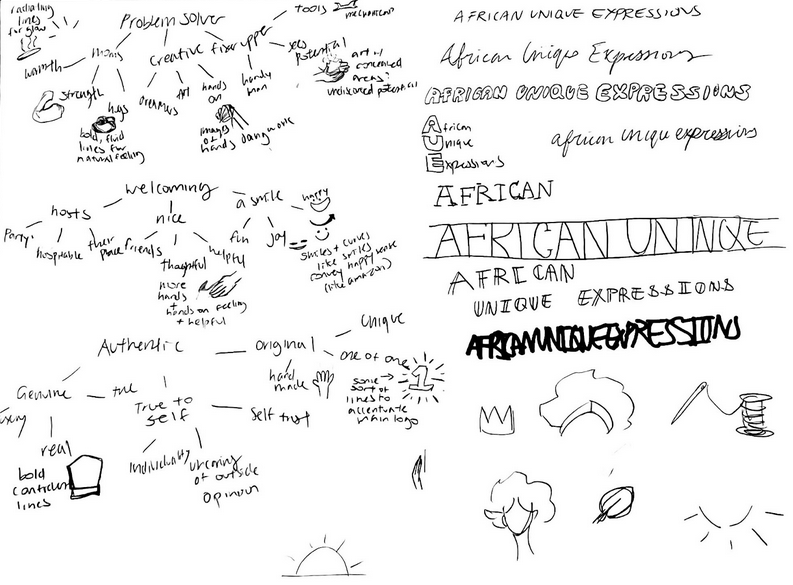 radiating
lines
for glow
Problem solver
tools
mechanisms
warmth
moms
Creative
fixer upper
sees
potential
strength
hugs
dreamers
art
hands
on
handy
man
art of
concerned
areas?
undiscovered potential
bold, fluid
lines for
natural feeling
images
of
hands
dangwork
welcoming
hosts
nice
a smile
happy
Party
hospitable
their
place
friends
thoughtful
helpful
fun
joy
smiles + curves
like smiles
convey happy
(like amazon)
more
hands
+
hands on feeling
+ helpful
Authentic
original
Unique
one of one
hand
made
some
sort of
lines to
accentuate
main logo
1
Genuine
true
True to
self
self trust
luxury
real
individuality
uncaring
of outside
opinion
bold
confident
lines
AFRICAN UNIQUE EXPRESSIONS
African Unique Expressions
AFRICAN UNIQUE EXPRESSIONS
African
Unique
Expressions
african unique expressions
AFRICAN
AFRICAN UNINQE
AFRICAN
UNIQUE EXPRESSIONS
AFRICANUNIQUEEXPRESSIONS